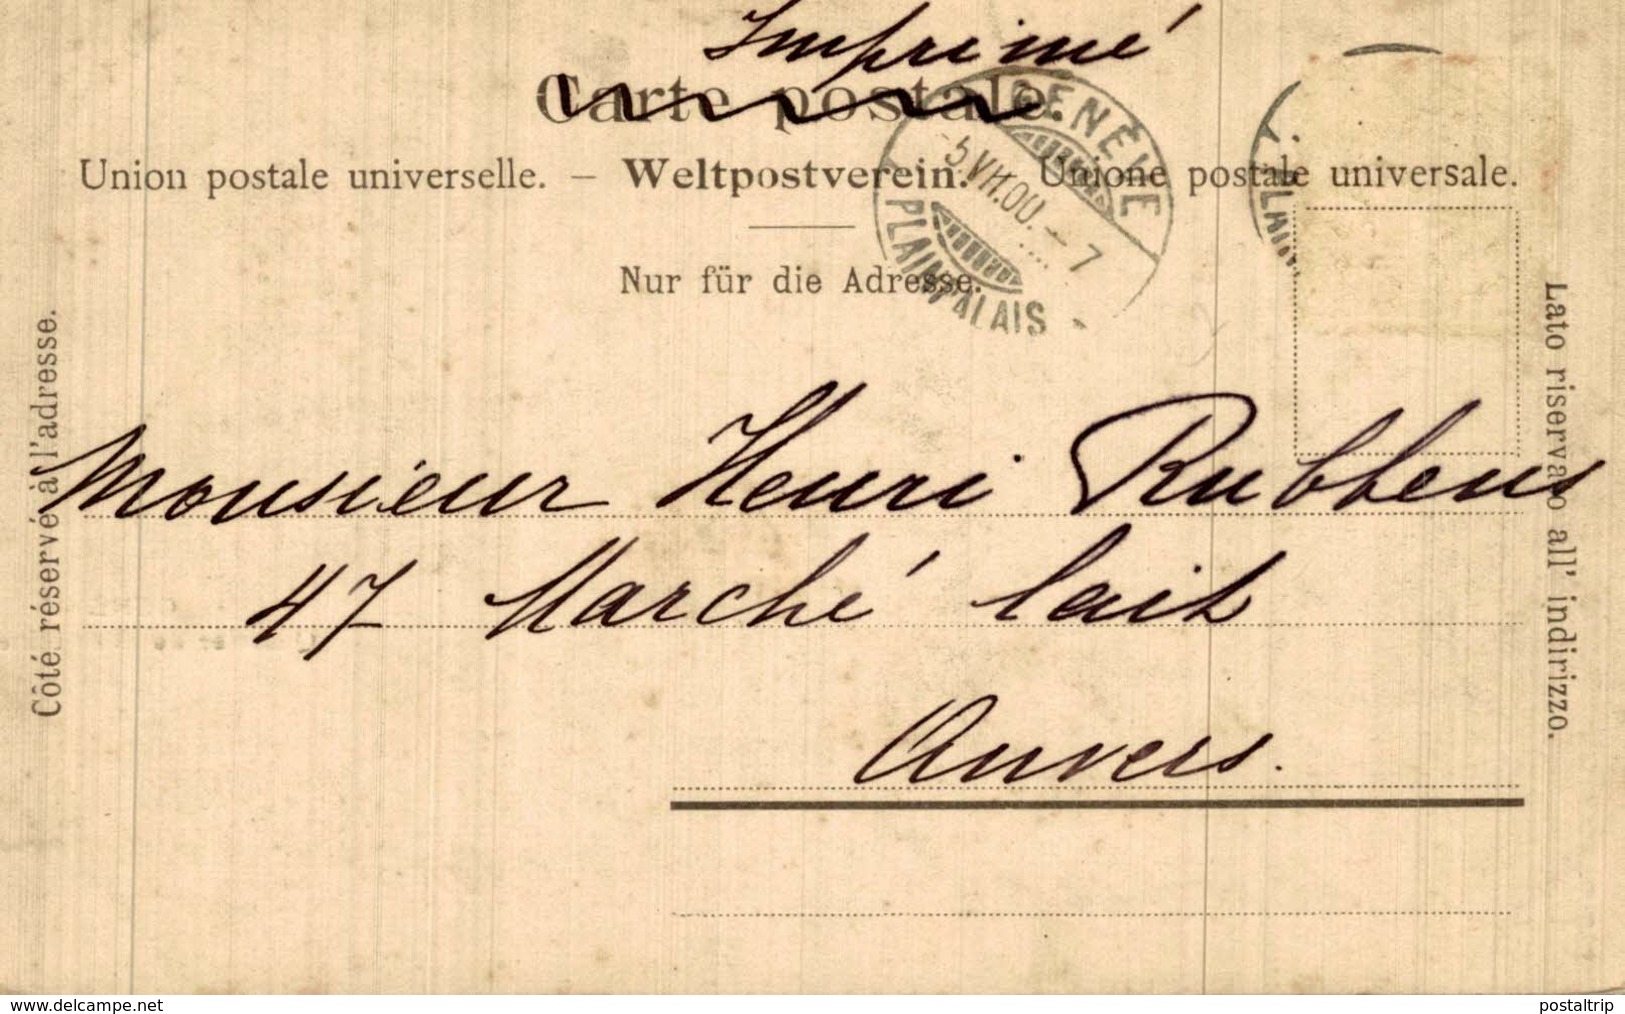 Imprimé
Carte postale.
Union postale universelle. – Weltpostverein. – Unione postale universale.
GENÈVE
-5.VII.00.-7
PLAINPALAIS
Nur für die Adresse.
Côté réservé à l'adresse.
Lato riservato all' indirizzo.
Monsieur Henri Rubbens
47 Marché lait
Anvers.
www.delcampe.net
postaltrip